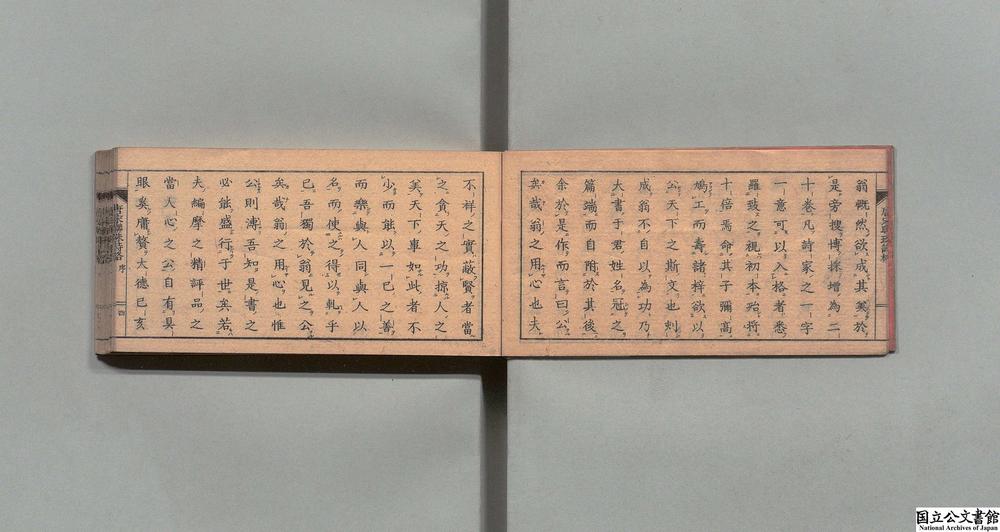 翁慨然欲成其美於
是旁搜博採增為二
十卷凡詩家之一字
一意可以入格者悉
羅致之視初本殆將
十倍焉命其子彌高
鳩工而壽諸梓欲以
公天下之斯文也刻
成翁不自以為功乃
大書于君姓名冠之
篇端而自附於其後
余於是作而言曰公
矣哉翁之用心也夫
不祥之實蔽賢者當
之貪天之功掠人之
美天下車如此者不
少而能以一己之善
而樂與人同與人以
名而使之得以軋乎
已吾獨於翁見之公
矣哉翁之用心也惟
公則溥吾知是書之
必能盛行于世矣若
夫編摩之精評品之
當人心之公自有具
眼矣庸贅大德巳亥
序
四
国立公文書館
National Archives of Japan